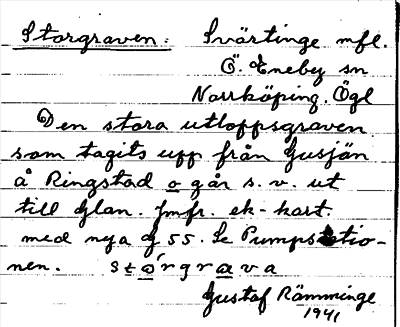 Storgraven: Svärtinge mfl.
Ö. Eneby sn
Norrköping. Ögl
Den stora utloppsgraven
som tagits upp från Gusjön
å Ringstad o går s. v. ut
till Glan. Jmfr. ek-kart.
med nya g 55. Se Pumpstatio-
nen. stó̱rgra̱va
Gustaf Rämminge
1941